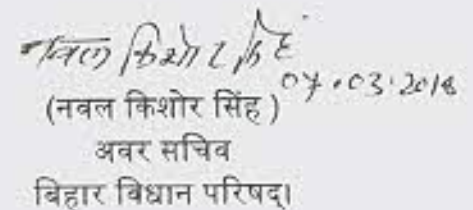 नवल किशोर सिंह
07.03.2018
(नवल किशोर सिंह)
अवर सचिव
बिहार विधान परिषद्।